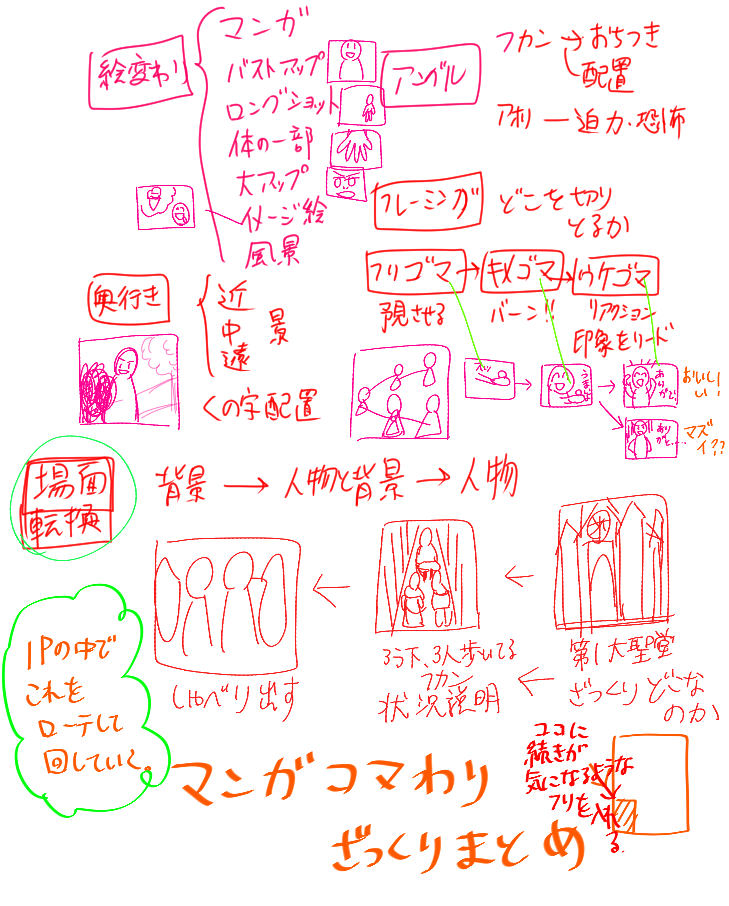 絵変わり
マンガ
バストアップ
ロングショット
体の一部
大アップ
イメージ絵
風景
アングル
フカン→おちつき
配置
アオリー迫力・恐怖
フレーミング
どこを切り
とるか
フリゴマ→キメゴマ→ウケゴマ
予覗させる
バーン!!
リアクション
印象をリード
奥行き
近
中 景
遠
くの字配置
ありがと
おいし
い!
ありがと
マズ
イ??
場面
転換
背景→人物と背景→人物
第1大聖堂
ざっくりどこな
のか
3人歩いてる
フカン
状況説明
しゃべり出す
1Pの中で
これを
ローテして
回していく。
ココに
続きが
気になるような
フリを入れ
る.
マンガコマわり
ざっくりまとめ